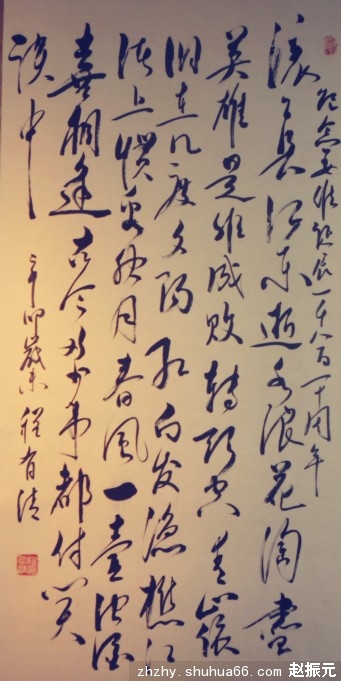 紀念姜維誕辰一千八百一十周年
滚滚長江东逝水浪花淘盡
英雄是非成败轉頭空青山依
旧在几度夕阳红白发渔樵江
渚上惯看秋月春风一壶浊酒
喜相逢古今多少事都付笑
談中
辛卯歲末程有清
zhzhy.shuhua66.com 赵振元